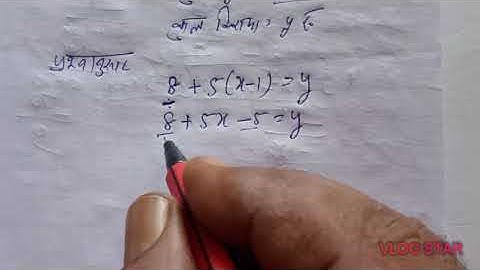 कुल किराया = y रु
प्रश्नानुसार
8 + 5(x-1) = y
8 + 5x - 5 = y
VLOG STAR